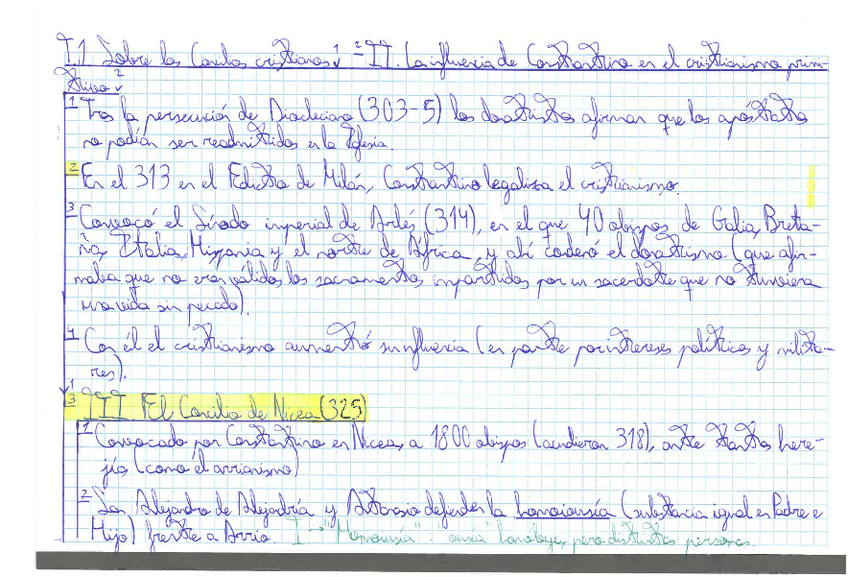 I.1 Sobre los Concilios cristianos 1 2 II. La influencia de Constantino en el cristianismo primi-
tivo 2
1 Tras la persecución de Diocleciano (303-5) los donatistas afirman que los apóstatas
no podían ser readmitidos en la Iglesia.
2 En el 313 en el Edicto de Milán, Constantino legaliza el cristianismo.
3 Convocó el Sínodo imperial de Arlés (314), en el que 40 obispos de Galia, Breta-
ña, Italia, Hispania y el norte de África, y ahí condenó el donatismo (que afir-
maba que no eran válidos los sacramentos impartidos por un sacerdote que no tuviera
una vida sin pecado).
4 Con él el cristianismo aumentó su influencia (en parte por intereses políticos y milita-
res).
1
3 III El Concilio de Nicea (325)
1 Convocado por Constantino en Nicea, a 1800 obispos (acudieron 318), ante tantas here-
jías (como el arrianismo)
2 San Alejandro de Alejandría y Atanasio defienden la homoiousía (substancia igual en Padre e
Hijo) frente a Arrio. I→ "Homousía": "ousía" pero distintas personas.